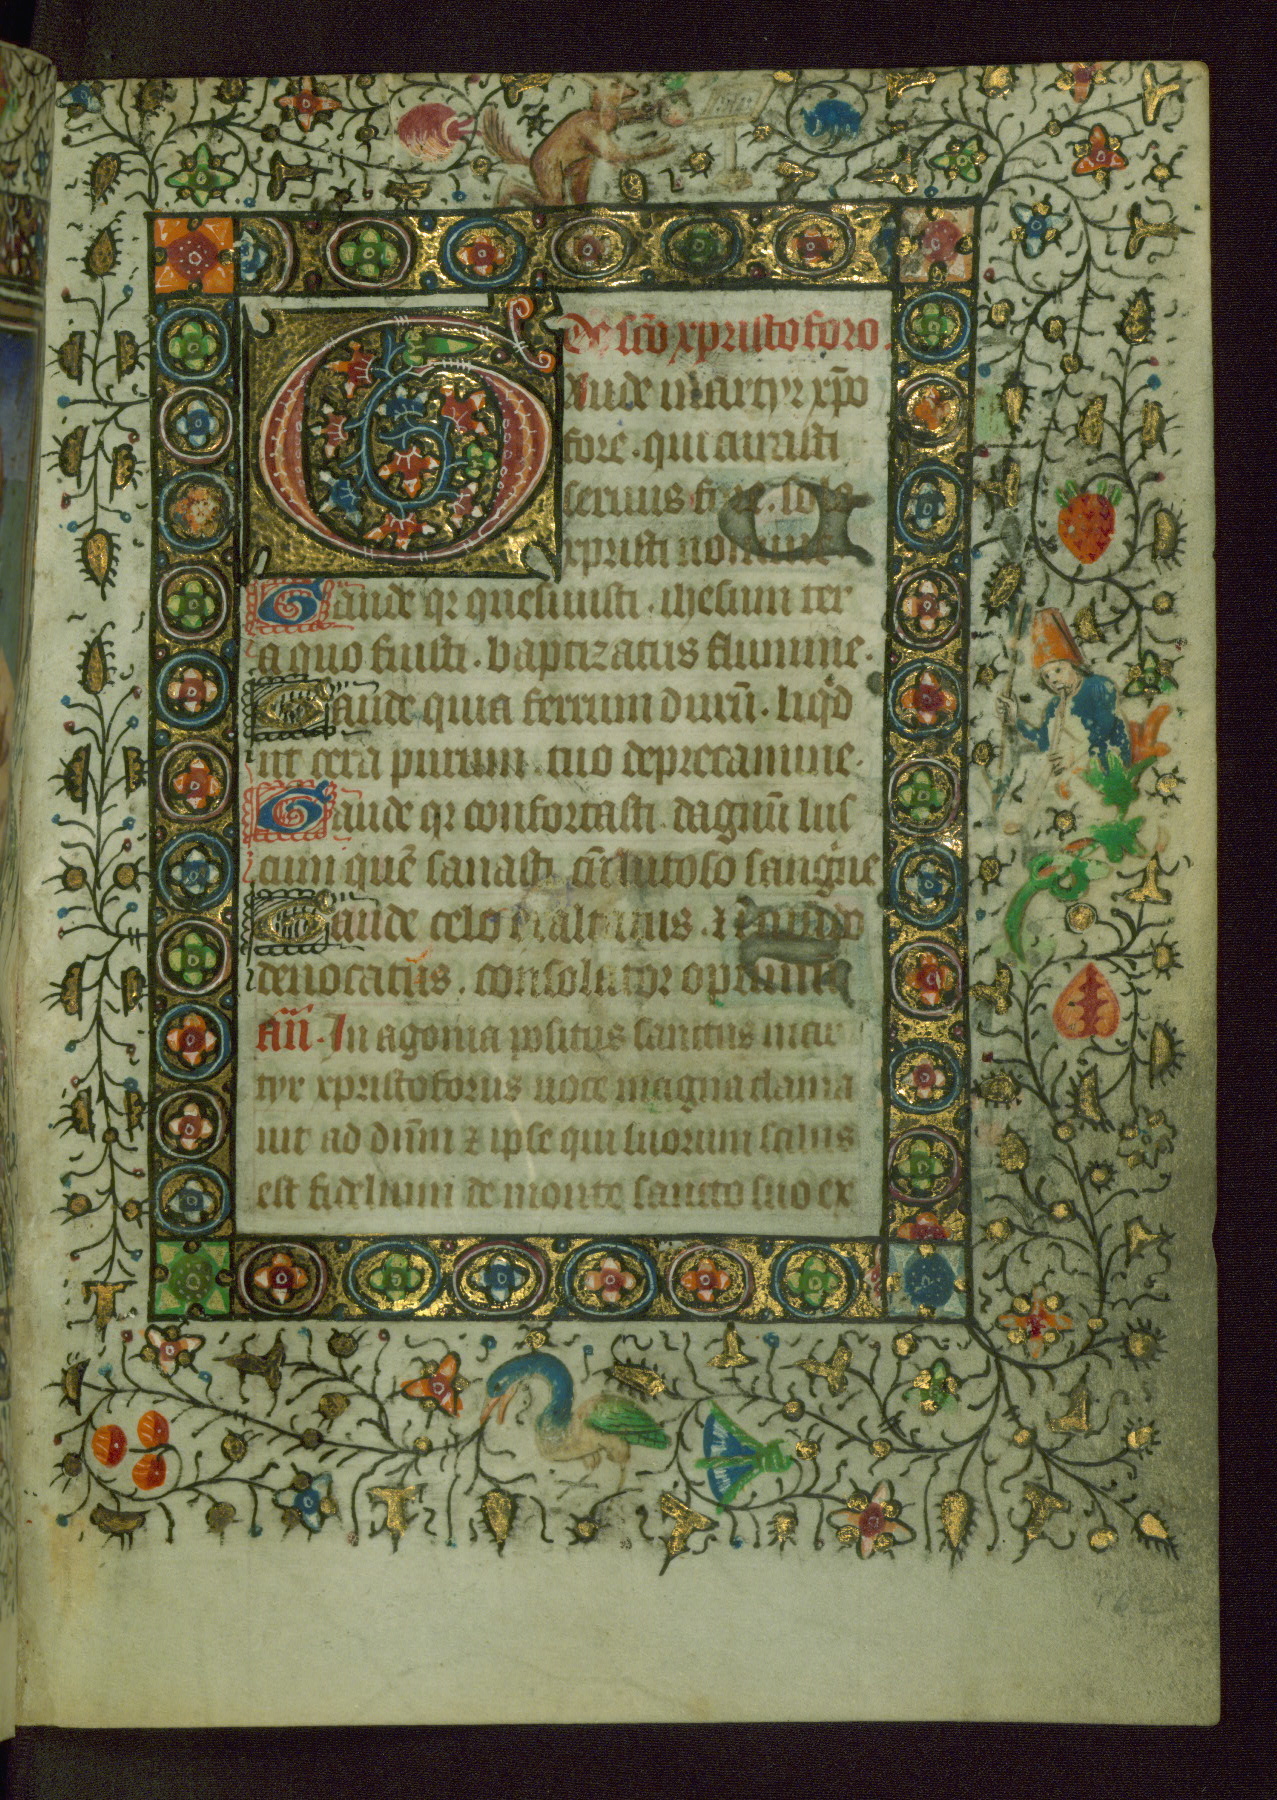 De sc̄o xpristoforo.
Gaude martyr xp̄o
fore . qui curasti
seruus fi
xpristi nomine
Gaude qr quesiuisti . ihesum ter
a quo fuisti . baptizatus flumine .
Gaude quia ferrum durū . liq̇d
ut cera purum . tuo deprecamine .
Gaude qr confortasti . dagnū lus
cum quē sanasti cū lutoso sangͥne
Gaude celo
deuocatus . consolator optime
an̄ . In agonia positus sanctus mar
tyr xpristoforus uoce magna clama
uit ad dn̄m ⁊ ipse qui suorum salus
est fidelium de monte sancto suo ex